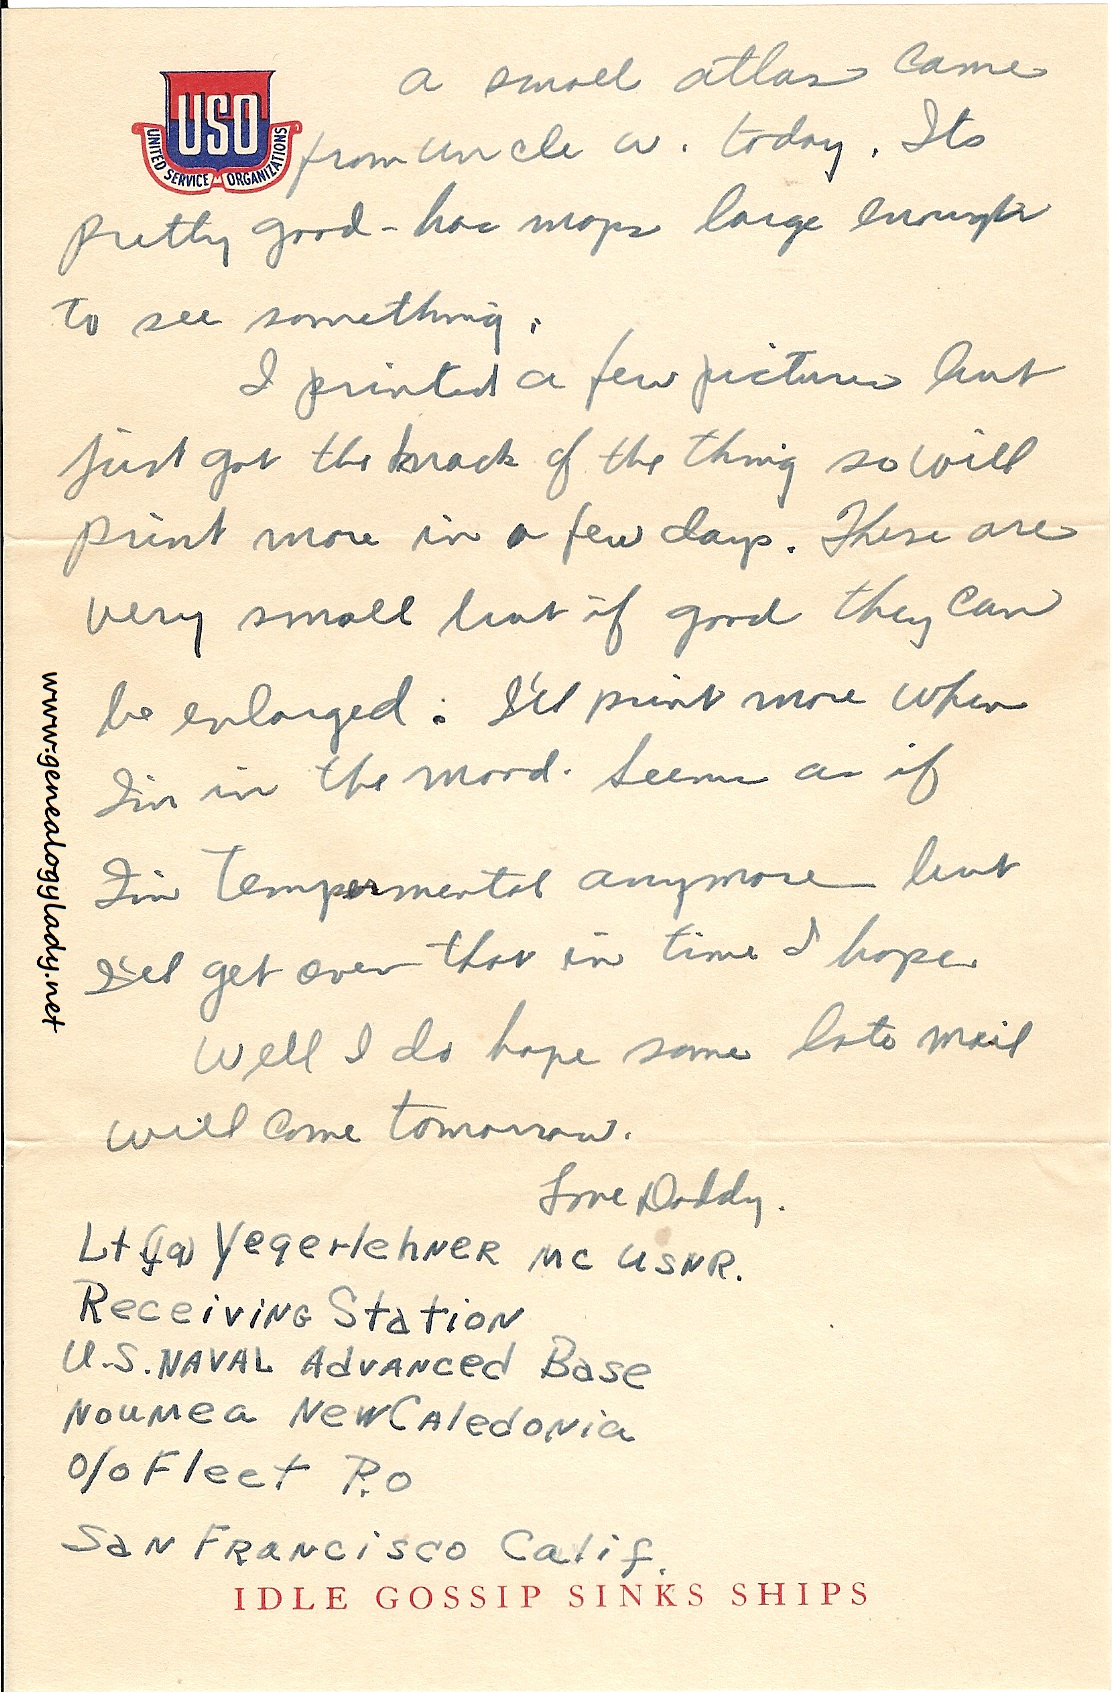 USO
UNITED SERVICE ORGANIZATIONS
a small atlas came
from uncle w. today. Its
pretty good - has maps large enough
to see something.
I printed a few pictures but
just got the knack of the thing so will
print more in a few days. These are
very small but if good they can
be enlarged. I'll print more when
I'm in the mood. Seems as if
I'm Tempermental anymore but
I'll get over that in time I hope
Well I do hope some late mail
will come tomorrow.
Love Daddy.
Lt (jg) Yegerlehner MC USNR.
Receiving Station
U.S. Naval Advanced Base
Noumea New Caledonia
o/o Fleet P.O
San Francisco Calif.
IDLE GOSSIP SINKS SHIPS
www.genealogylady.net